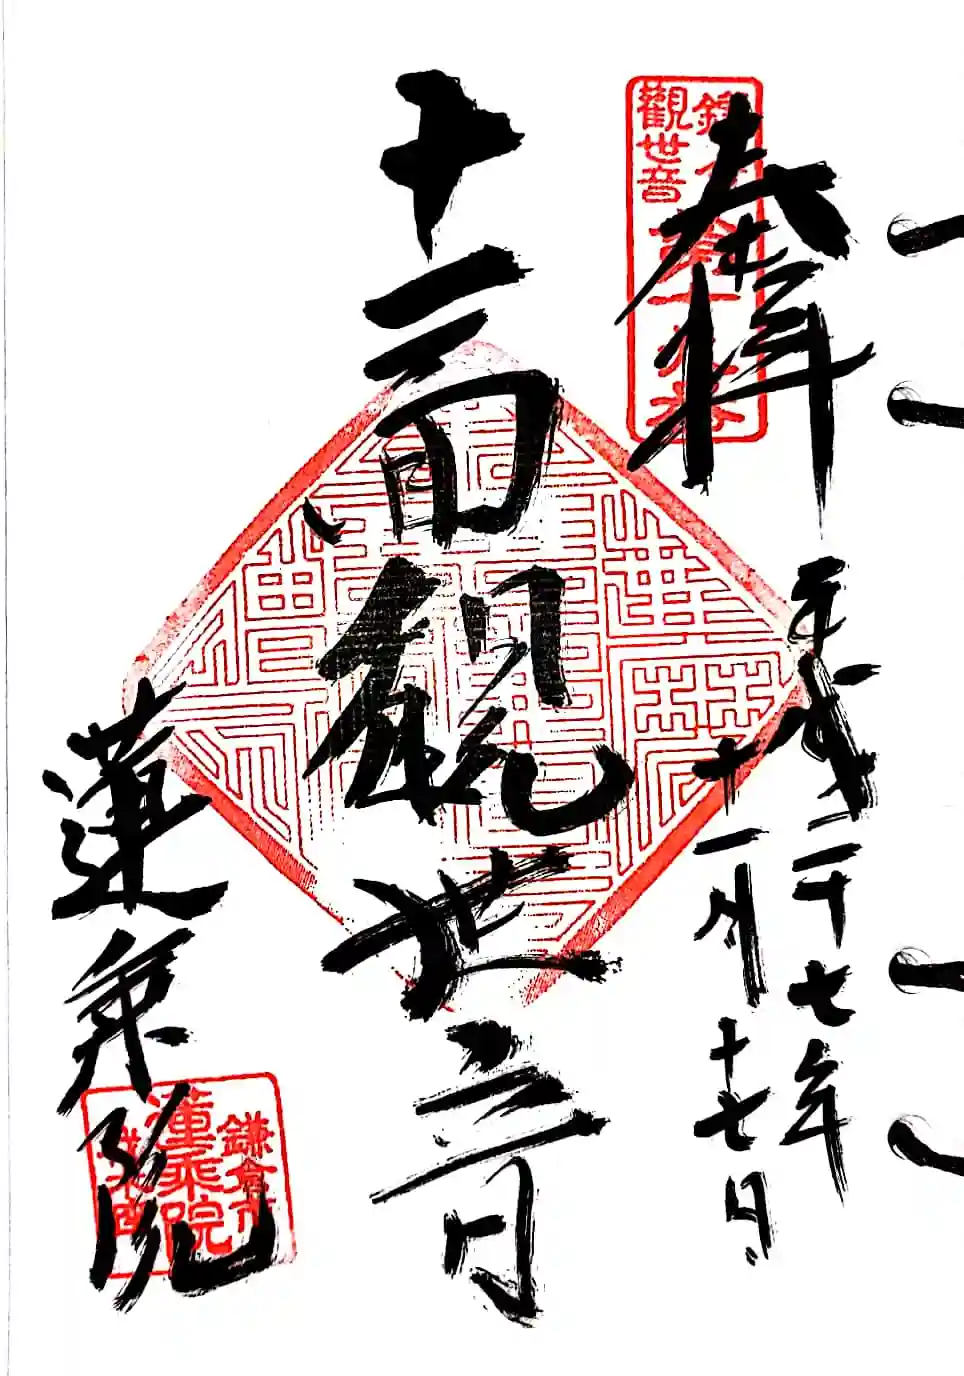 奉拝
觀世音
平成二十七年
十一月十七日
十一面観世音
蓮乗院
鎌倉市
蓮乘院